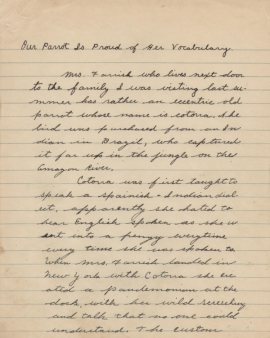 Our Parrot Is Proud of Her Vocabulary.
Mrs. Farrish who lives next door
to the family I was visiting last su-
mmer has rather an eccentric old
parrot whose name is Cotorra. The
bird was purchased from an In
dian in Brazil, who captured
it far up in the jungle on the
Amazon River.
Cotorra was first taught to
speak a Spanish-Indian dial
ect, apparently she hated to
hear English spoken as she w
ent into a frenzy everytime
every time she was spoken to
When Mrs. Farrish landed in
New York with Cotorra she cre
ated a pandemonium at the
dock, with her wild screeching
and talk that no one could
understand. The custom